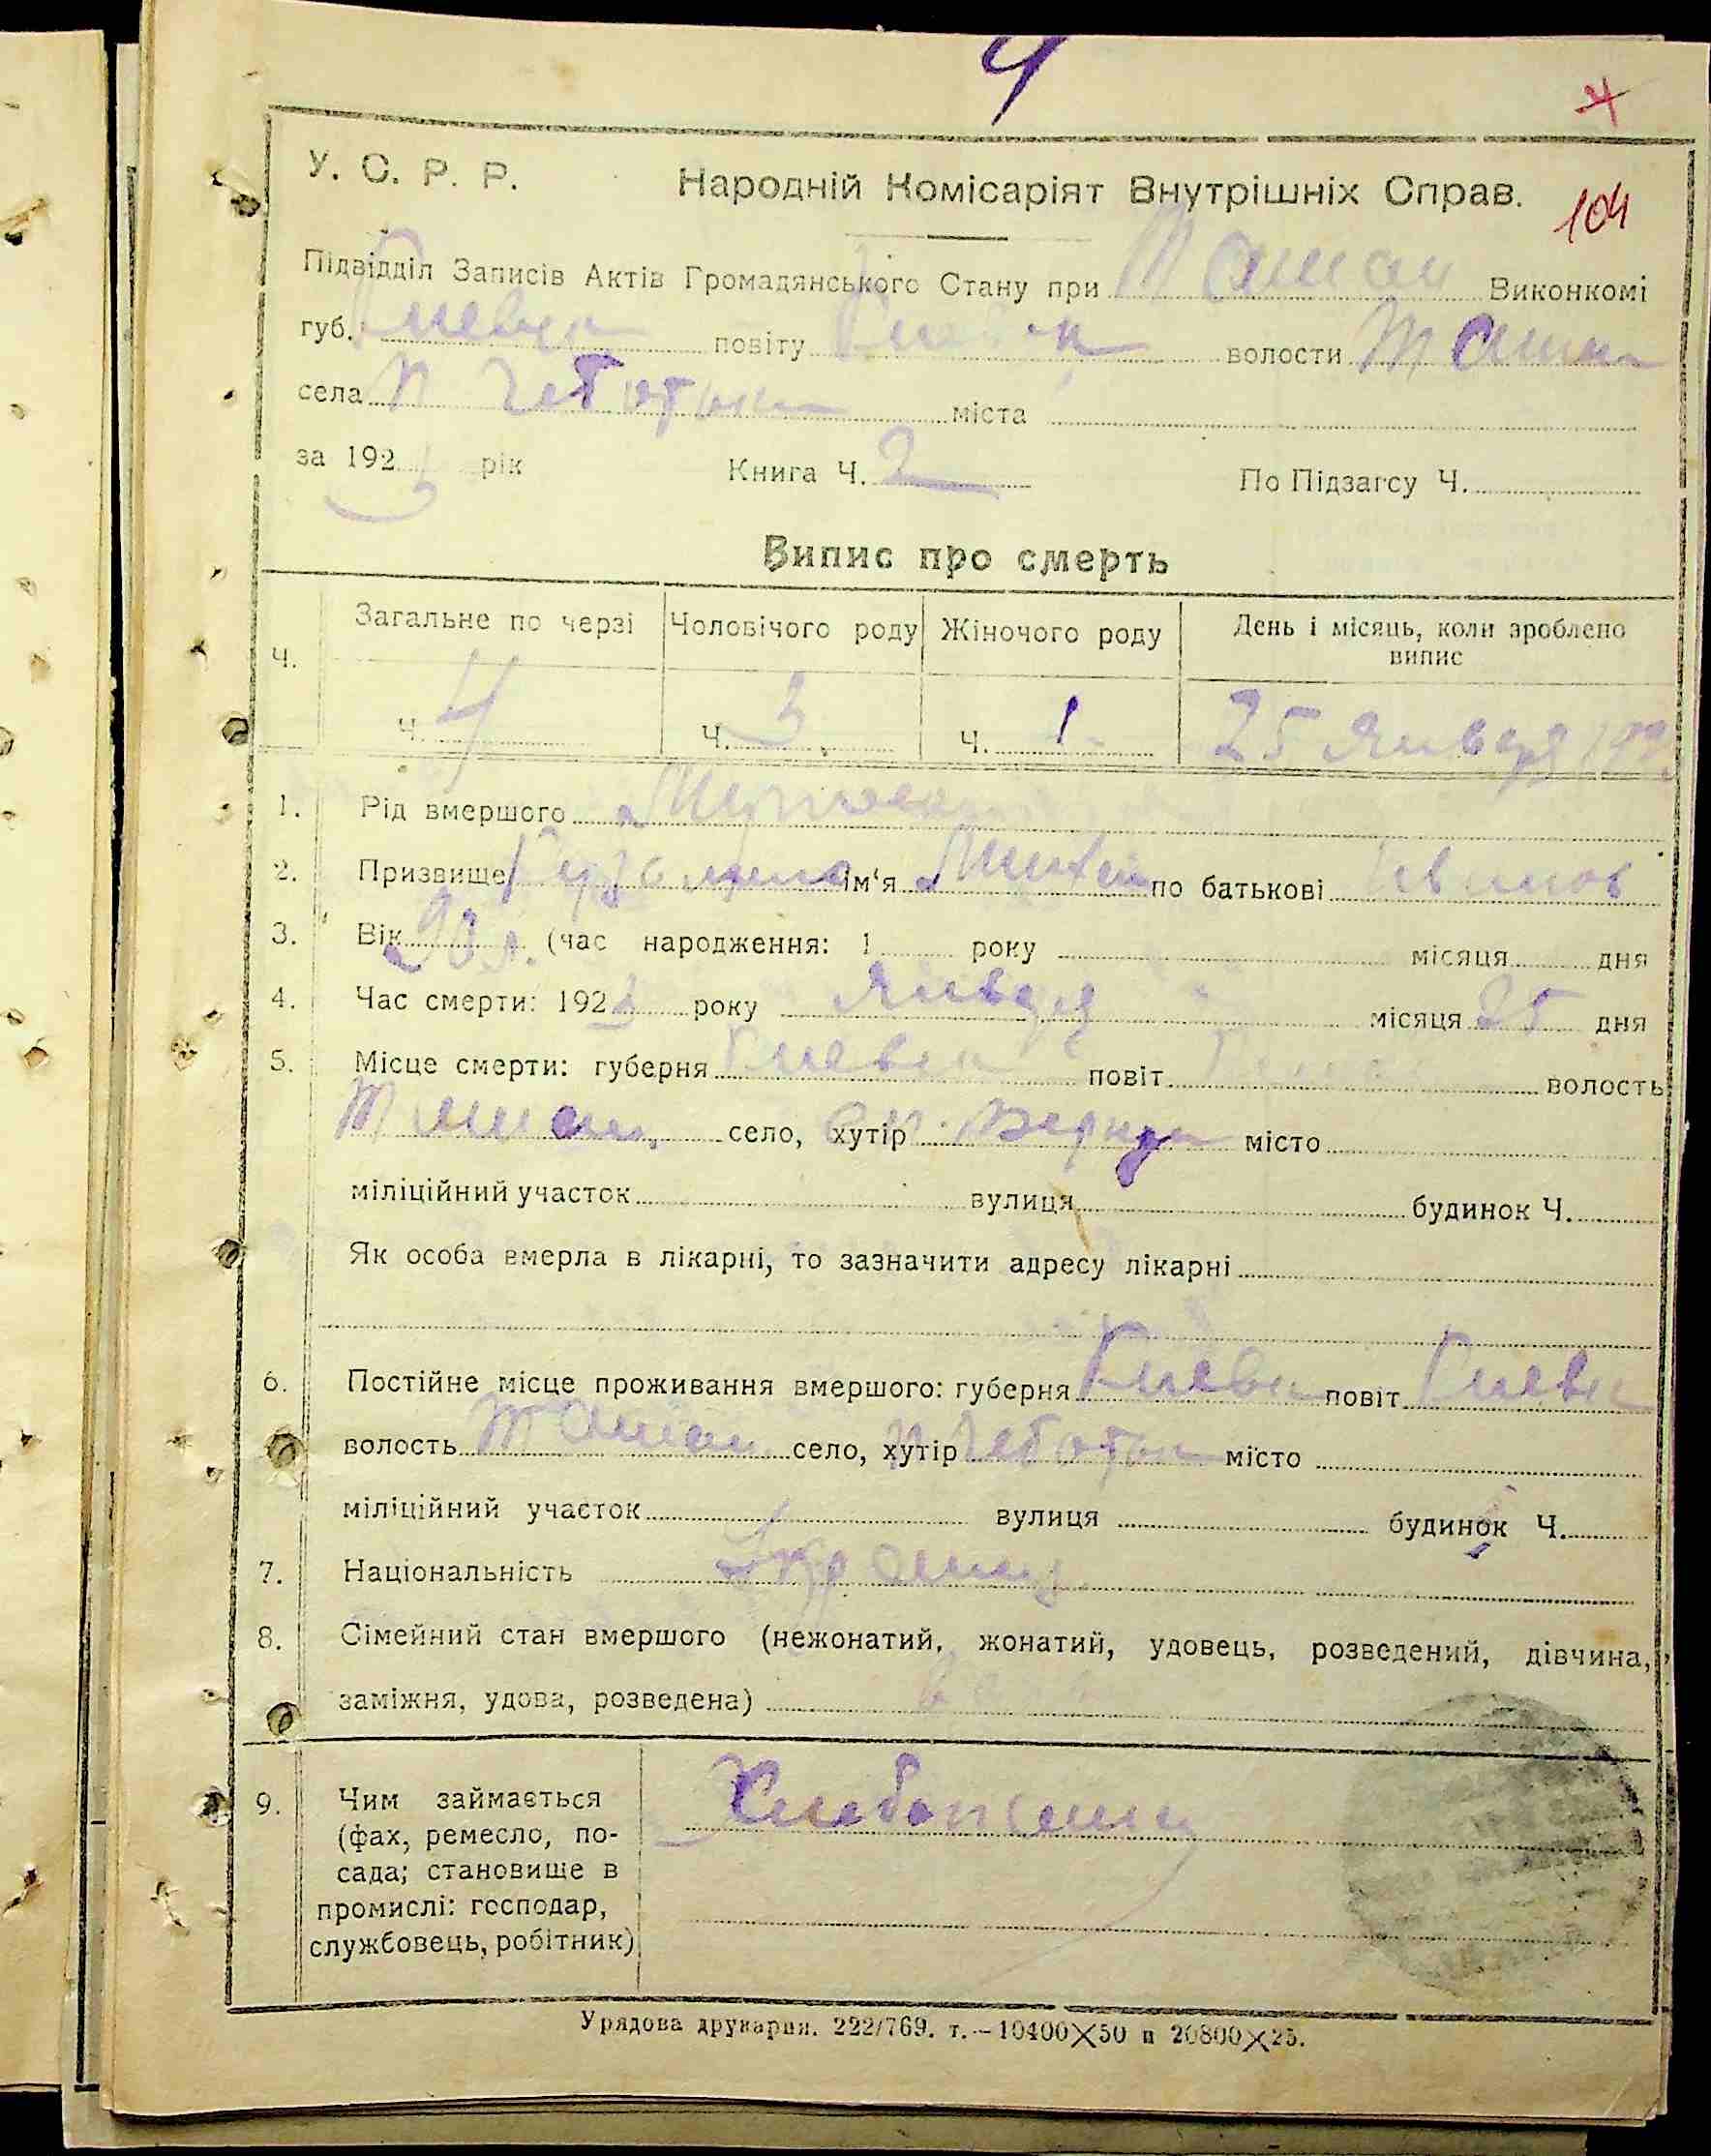 4
4
У. С. Р. Р. Народній Комісаріят Внутрішніх Справ. 104
Підвідділ Записів Актів Громадянського Стану при Ташан Виконкомі
губ. Киевск повіту Киевск волости Ташан
села П Чеботьки міста
за 1923 рік Книга Ч. 2 По Підзагсу Ч.
Випис про смерть
Ч. Загальне по черзі Чоловічого роду Жіночого роду День і місяць, коли зроблено
випис
Ч. 4 Ч. 3 Ч. 1 25 Января 192
1. Рід вмершого Мужской
2. Призвище ім'я Михей по батькові Иванов
3. Вік 90 л. (час народження: 1 року місяця дня
4. Час смерти: 1923 року Января місяця 25 дня
5. Місце смерти: губерня Киевск повіт волость
Ташан, село, хутір місто
міліційний участок вулиця будинок Ч.
Як особа вмерла в лікарні, то зазначити адресу лікарні
6. Постійне місце проживання вмершого: губерня Киевск повіт Киевск
волость Ташан село, хутір місто
міліційний участок вулиця будинок Ч.
7. Національність Украинец
8. Сімейний стан вмершого (нежонатий, жонатий, удовець, розведений, дівчина,
заміжня, удова, розведена)
9. Чим займається Хлебопашец
(фах, ремесло, по-
сада; становище в
промислі: господар,
службовець, робітник)
Урядова друкарня. 222/769. т.—10400X50 и 20800X25.